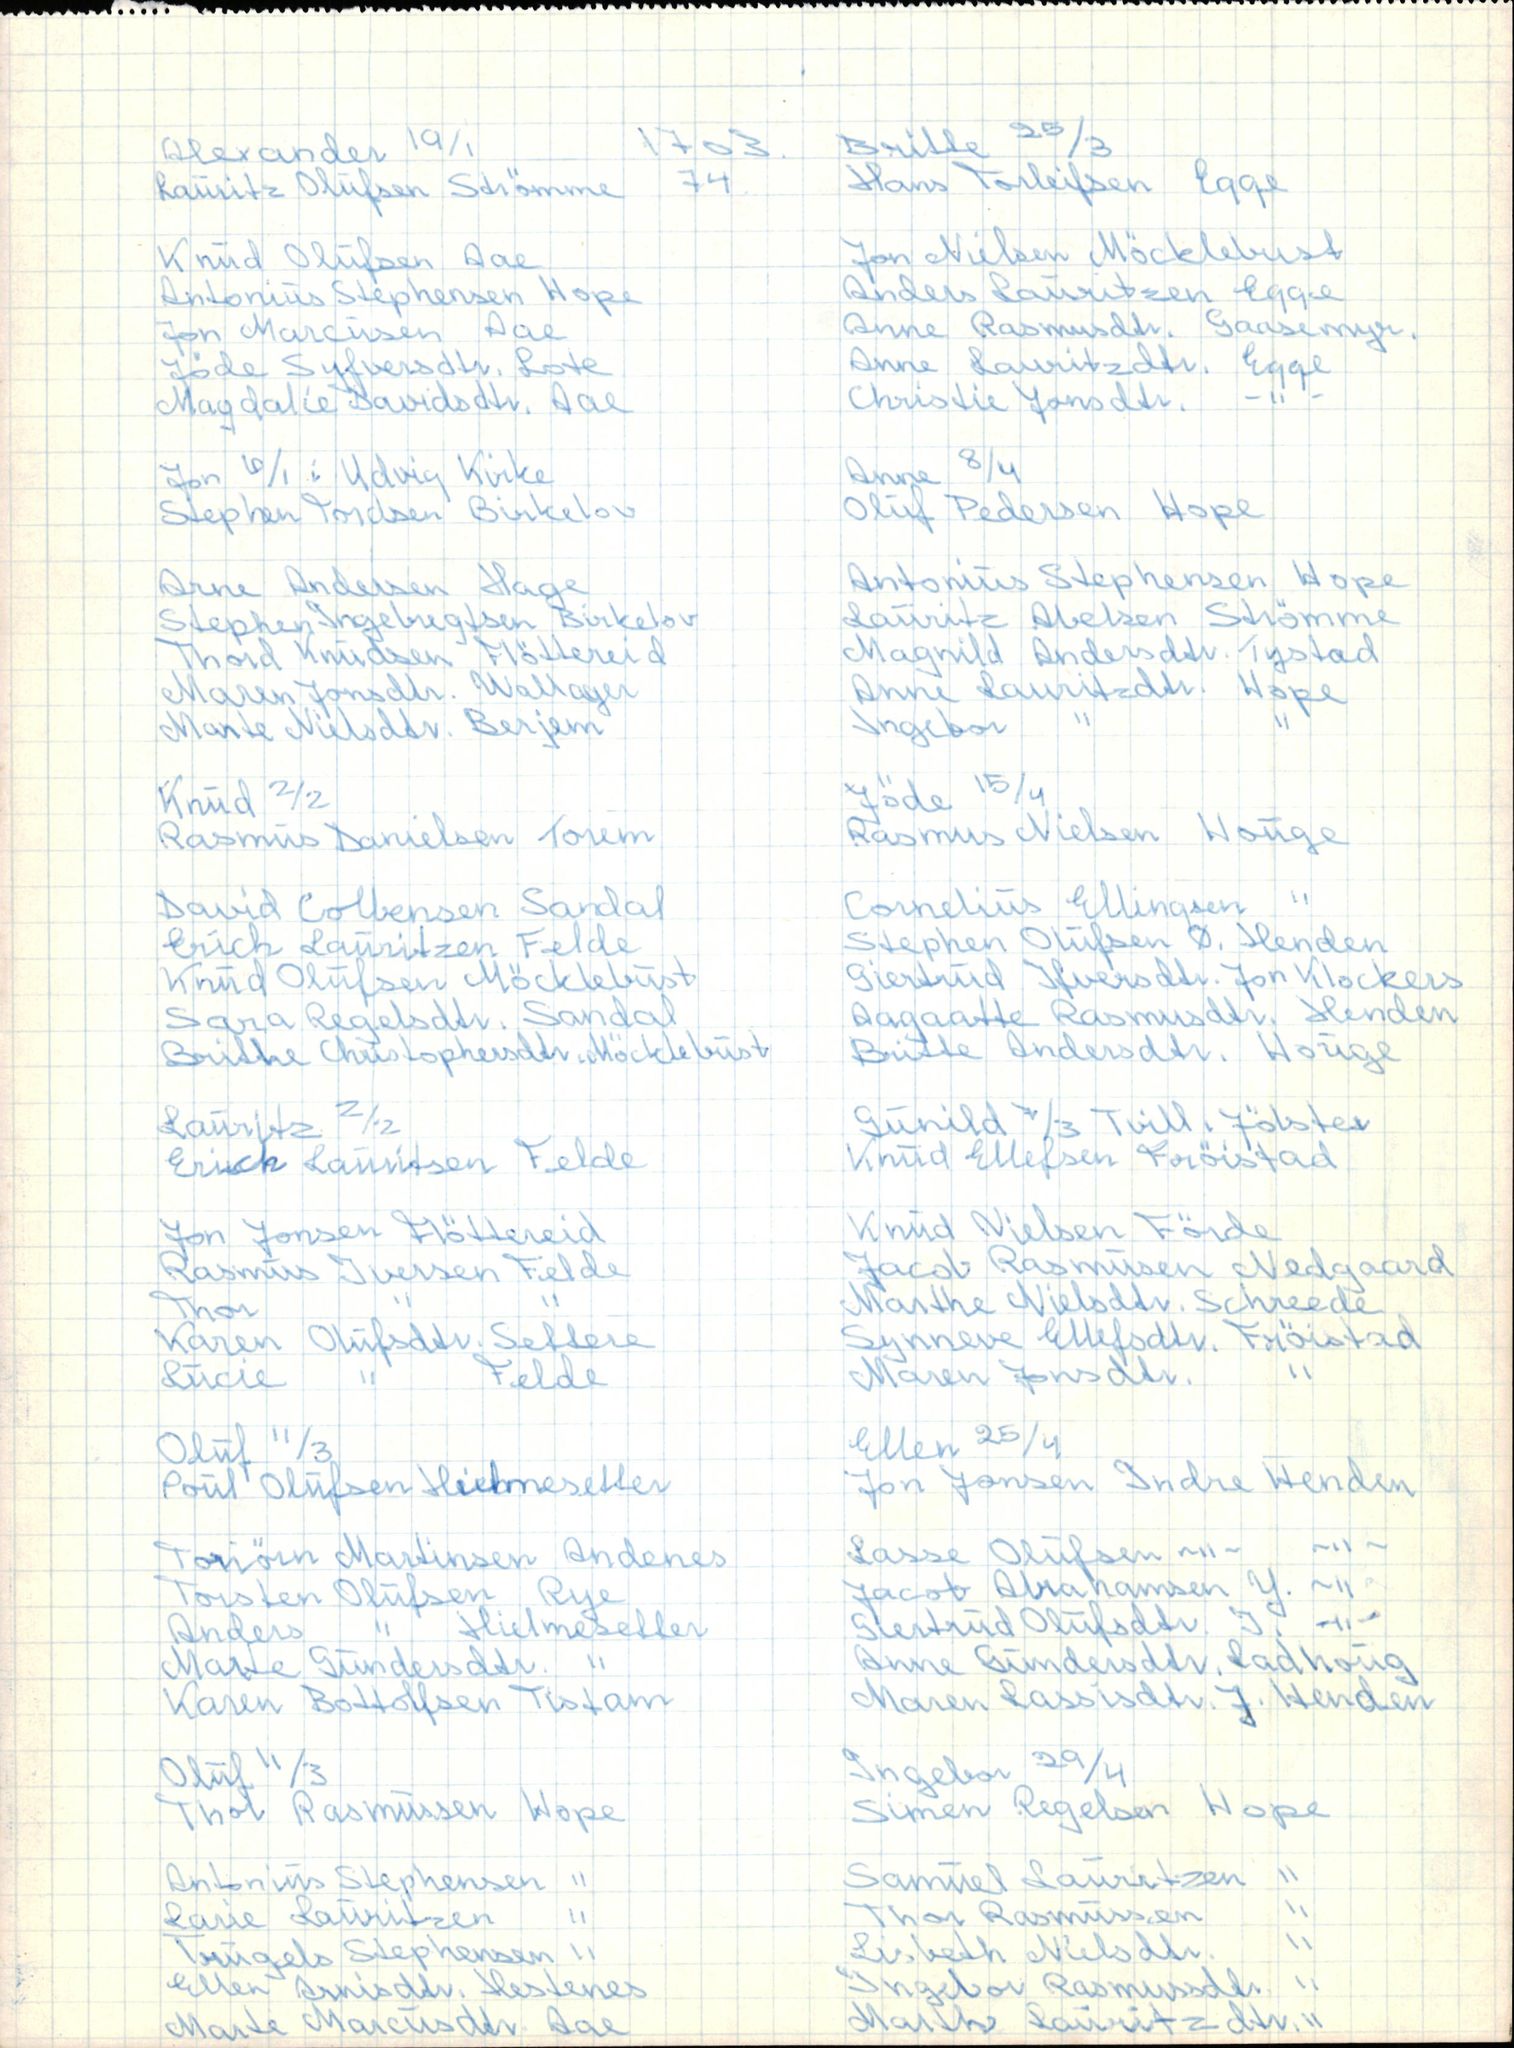 Alexander 19/1 1703.
Lauritz Olufsen Strömme 74
Knud Olufsen Aae
Antonius Stephensen Hope
Jon Marcusen Aae
Jöde Syfversdtr. Lote
Magdalie Davidsdtr. Aae
Jon 6/1 i Udvig Kirke
Stephen Tordsen Birkelov
Arne Andersen Hage
Stephen Ingebregtsen Birkelov
Thord Knudsen Flöttereid
Maren Jonsdtr. Wallager
Marte Nielsdtr. Berjem
Knud 2/2
Rasmus Danielsen Torem
David Colbensen Sandal
Erich Lauritzen Felde
Knud Olufsen Möcklebust
Sara Regelsdtr. Sandal
Brithe Christophersdtr. Möcklebust
Lauritz 2/2
Erich Lauritsen Felde
Jon Jonsen Flöttereid
Rasmus Iversen Felde
Thor " "
Karen Olufsdtr. Settere
Lucie " Felde
Oluf 11/3
Poul Olufsen Hielmesetter
Toriörn Martinsen Andenes
Torsten Olufsen Rye
Anders " Hielmesetter
Marte Gundersdtr. "
Karen Bottolfsen Tistam
Oluf 11/3
Thor Rasmussen Hope
Antonius Stephensen "
Larie Lauritzen "
Trugels Stephensen "
Ellen Arnisdtr. Hestenes
Marte Marcusdtr Aae
Britte 25/3
Hans Torleifsen Egge
Jon Nielsen Möcklebust
Anders Lauritzen Egge
Anne Rasmusdtr. Gaasemyr.
Anne Lauritzdtr. Egge
Christie Jonsdtr. -"-
Anne 8/4
Oluf Pedersen Hope
Antonius Stephensen Hope
Lauritz Abelsen Strömme
Magnild Andersdtr. Tystad
Anne Lauritzdtr. Hope
Ingebor " "
Jöde 15/4
Rasmus Nielsen Houge
Cornelius Ellingsen "
Stephen Olufsen Ø. Henden
Giertrud Ifversdtr. Jon Klockers
Aagaatte Rasmusdtr. Henden
Britte Andersdtr. Houge
Gunild /3 Tvill. Jölster
Knud Ellefsen Fröistad
Knud Nielsen Förde
Jacob Rasmusen Nedgaard
Marthe Nielsdtr. Schreede
Synneve Ellefsdtr. Fröistad
Maren Jonsdtr. "
Ellen 25/4
Jon Jonsen Indre Henden
Lasse Olufsen -"- -"-
Jacob Abrahamsen Y. -"-
Giertrud Olufsdtr. I. -"-
Anne Gundersdtr. Ladhoug
Maren Lassisdtr. J. Henden
Ingebor 29/4
Simen Regelsen Hope
Samuel Lauritzen "
Thor Rasmussen "
Lisbeth Nielsdtr. "
Ingebor Rasmussdtr. "
Marthe Lauritzdtr. "